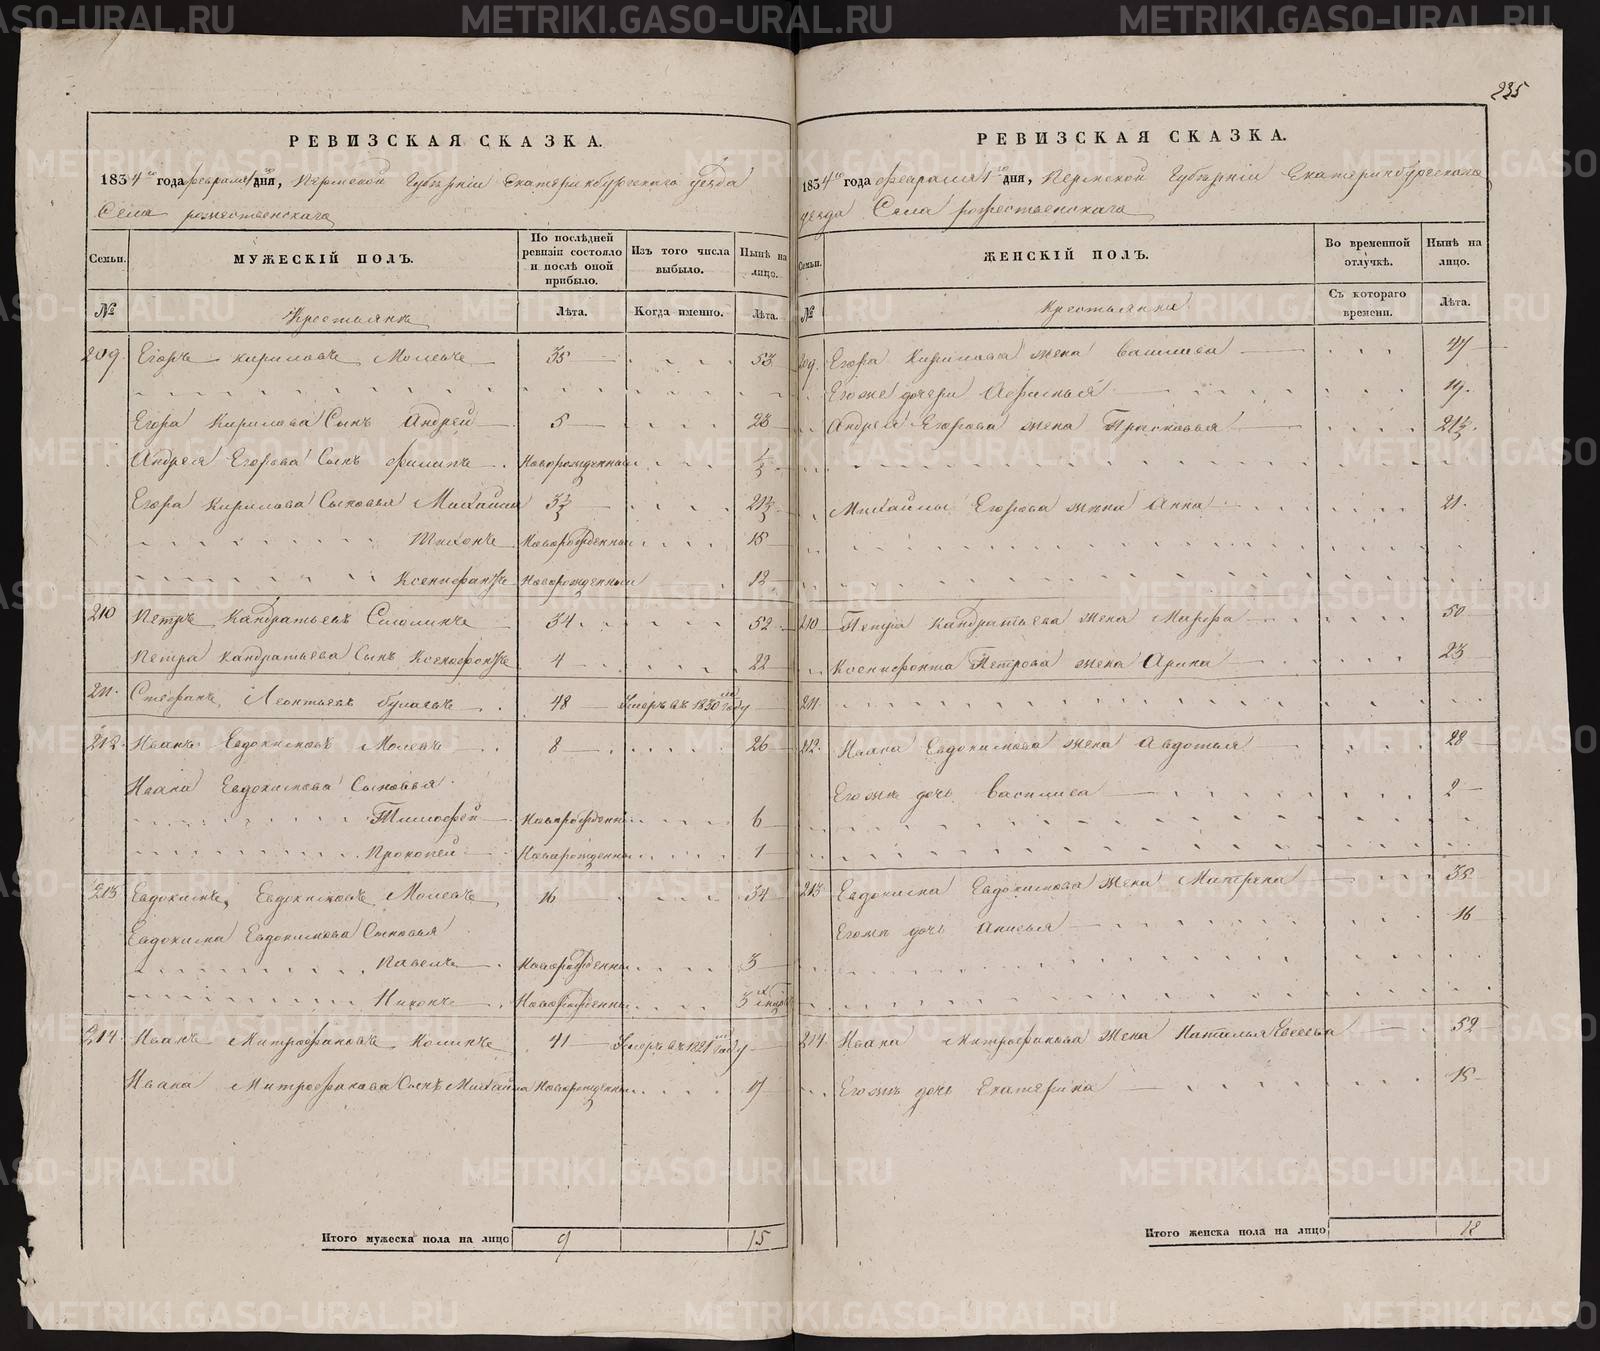 235
РЕВИЗСКАЯ СКАЗКА.
1834 го года февраля 1 дня, Пермской Губерніи Екатеринбургскаго уезда
Села рожественскаго
Семьи.
МУЖЕСКІЙ ПОЛЪ.
По послѣдней ревизіи состояло и послѣ оной прибыло.
Изъ того числа выбыло.
Нынѣ на лицо.
№
Крестьянъ
Лѣта.
Когда именно.
Лѣта.
209. Егоръ кириловъ 35 53
Егора Кирилова Сынъ Андрей 5 23
Андрея Егорова Сынъ филипъ Новорожденный ½
Егора Кирилова Сыновья Михайла 3½ 21½
Тихонъ Новорожденный 15
Ксенофонтъ Новорожденный 12
210 Петръ Кандратьевъ 34 52
Петра Кандратьева Сынъ Ксенофонтъ 4 22
211. Стефанъ Леонтьевъ 48 Умеръ въ 1830 году
212. Иванъ Евдокимовъ 8 26
Ивана Евдокимова Сыновья
Тимофей Новорожденны 6
Прокопей Новорожденны 1
213 Евдокимъ Евдокимовъ 16 34
Евдокима Евдокимова Сыновья
Павелъ Новорожденны 3
Никонъ Новорожденны 3
214. Иванъ Митрофановъ 41 Умеръ въ 1821 году
Ивана Митрофанова Сынъ Михайла Новорожденны 17
Итого мужеска пола на лицо 9 15
РЕВИЗСКАЯ СКАЗКА.
1834 го года февраля 1 го дня, Пермской Губерніи Екатеринбургскаго
уезда Села рожественскаго
Семьи.
ЖЕНСКІЙ ПОЛЪ.
Во временной отлучкѣ.
Нынѣ на лицо.
№
Крестьянка
Съ котораго времени.
Лѣта.
209. Егора Кирилова жена Василиса 47
Егоже дочери Афимья 19.
Андрея Егорова жена Прасковья 21½.
Михайлы Егорова жена Анна 21.
210 Петра Кандратьева жена Марфа 50
Ксенофонта Петрова жена Арина 23
211.
212. Ивана Евдокимова жена Авдотья 28
Егожъ дочь Василиса 2
213 Евдокима Евдокимова жена Матрена 35
Егожъ дочь Анисья 16
214. Ивана Митрофанова жена Наталья 52
Егожъ дочь Екатерина 15
Итого женска пола на лицо 12
METRIKI.GASO-URAL.RU